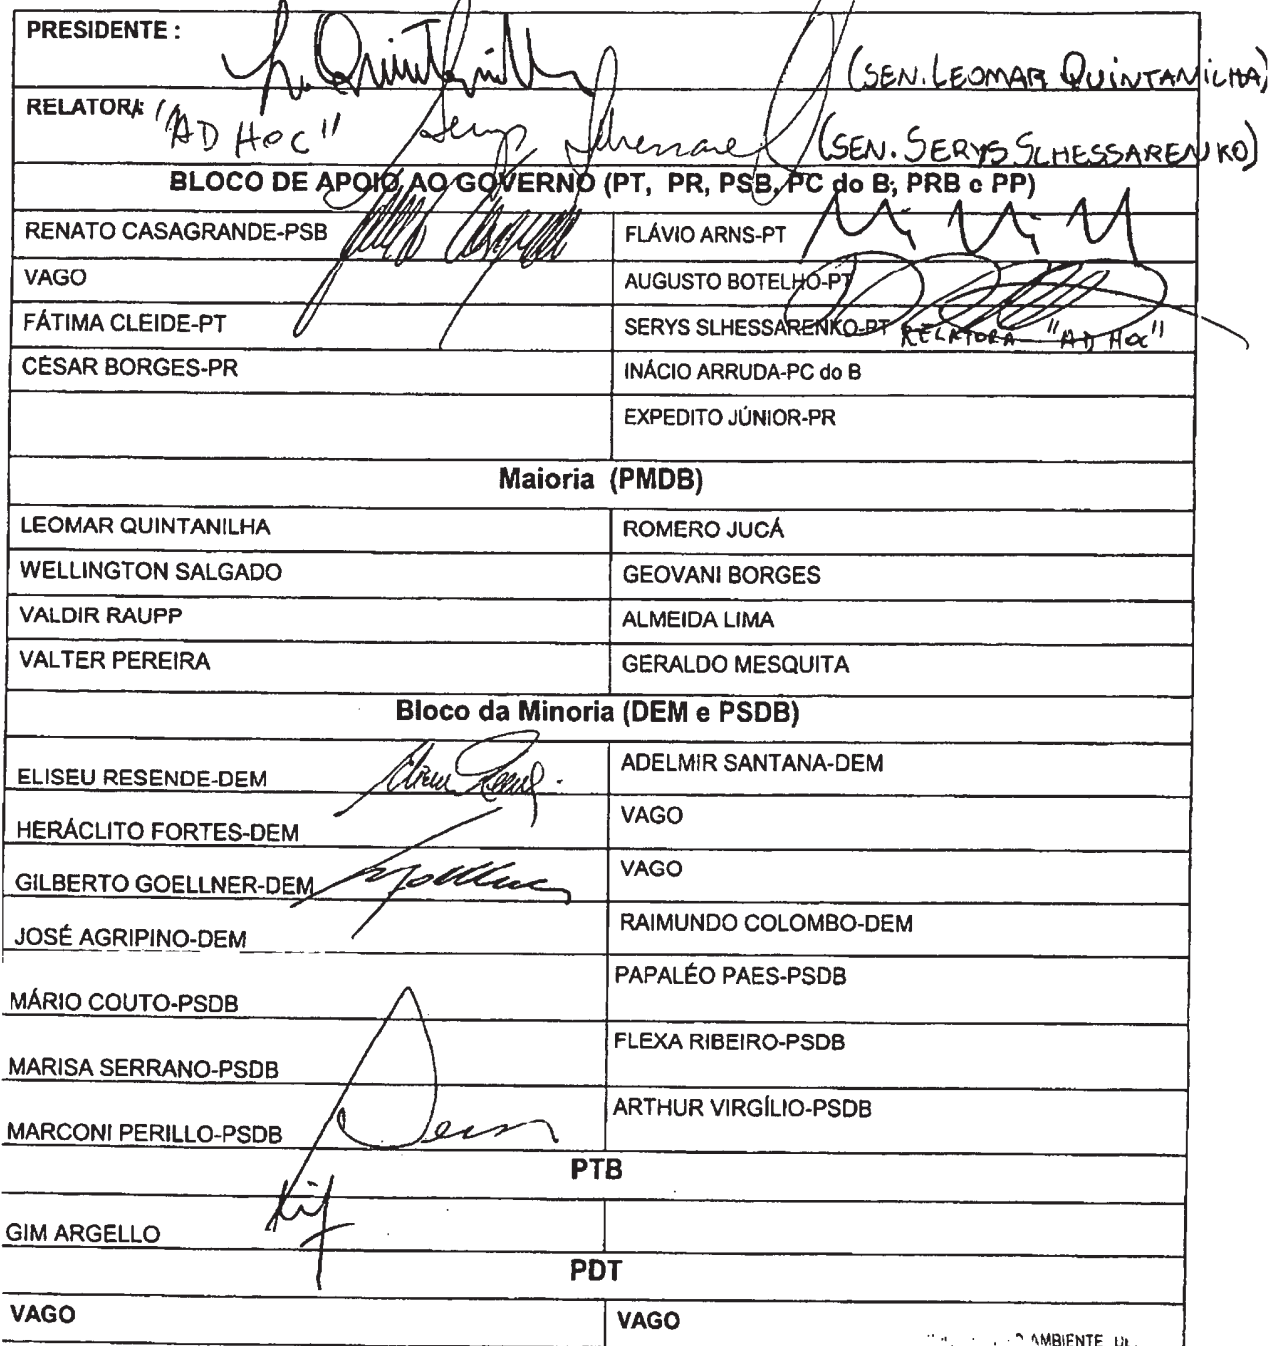 PRESIDENTE :
L. Quintanilha (SEN. LEOMAR QUINTANILHA)
RELATORA "AD HOC" Serys Slhessarenko (SEN. SERYS SLHESSARENKO)
BLOCO DE APOIO AO GOVERNO (PT, PR, PSB, PC do B, PRB e PP)
RENATO CASAGRANDE-PSB
FLÁVIO ARNS-PT
VAGO
AUGUSTO BOTELHO-PT
FÁTIMA CLEIDE-PT
SERYS SLHESSARENKO-PT RELATORA "AD HOC"
CÉSAR BORGES-PR
INÁCIO ARRUDA-PC do B
EXPEDITO JÚNIOR-PR
Maioria (PMDB)
LEOMAR QUINTANILHA
ROMERO JUCÁ
WELLINGTON SALGADO
GEOVANI BORGES
VALDIR RAUPP
ALMEIDA LIMA
VALTER PEREIRA
GERALDO MESQUITA
Bloco da Minoria (DEM e PSDB)
ELISEU RESENDE-DEM
ADELMIR SANTANA-DEM
HERÁCLITO FORTES-DEM
VAGO
GILBERTO GOELLNER-DEM
VAGO
JOSÉ AGRIPINO-DEM
RAIMUNDO COLOMBO-DEM
MÁRIO COUTO-PSDB
PAPALÉO PAES-PSDB
MARISA SERRANO-PSDB
FLEXA RIBEIRO-PSDB
MARCONI PERILLO-PSDB
ARTHUR VIRGÍLIO-PSDB
PTB
GIM ARGELLO
PDT
VAGO
VAGO
AMBIENTE